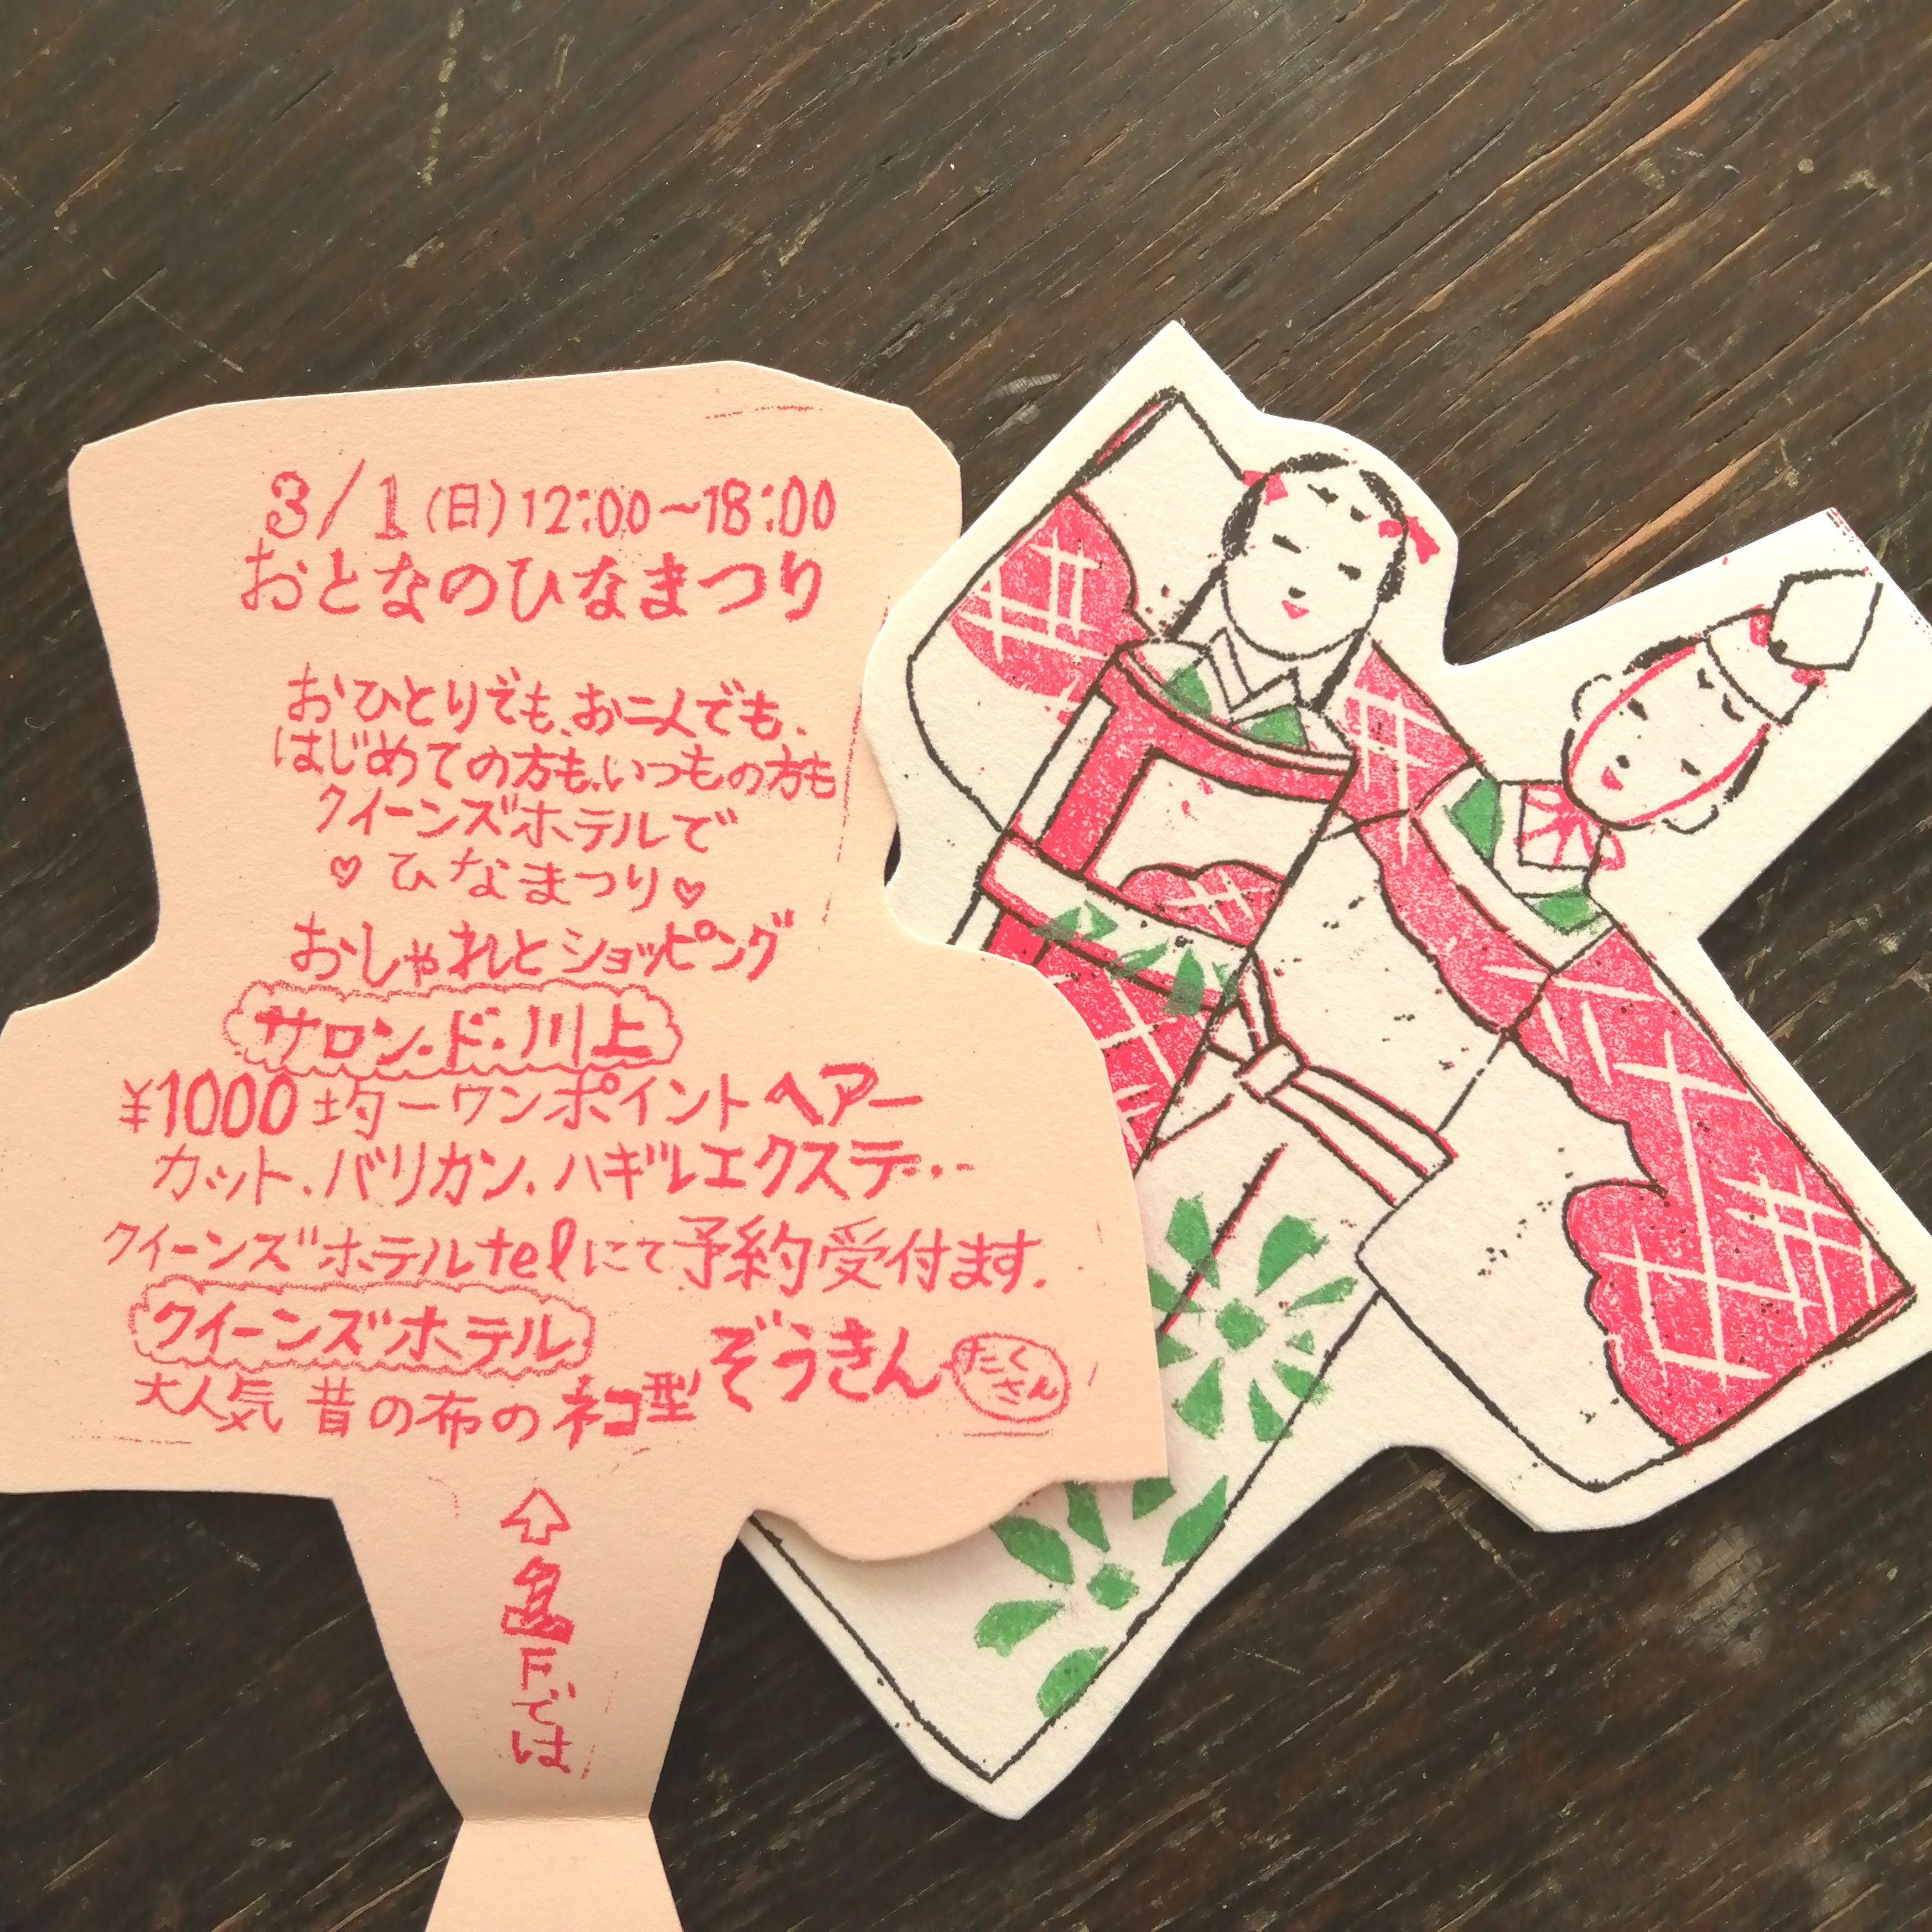 3/1(日)12:00〜18:00
おとなのひなまつり
おひとりでも、お二人でも、
はじめての方も、いつもの方も
クイーンズホテルで
♡ひなまつり♡
おしゃれとショッピング
サロン・ド・川上
¥1000均一ワンポイントヘアー
カット、バリカン、ハギレエクステ・・
クイーンズホテルtelにて予約受付ます.
クイーンズホテル
大人気 昔の布のネコ型ぞうきん たくさん
⇧
F.では